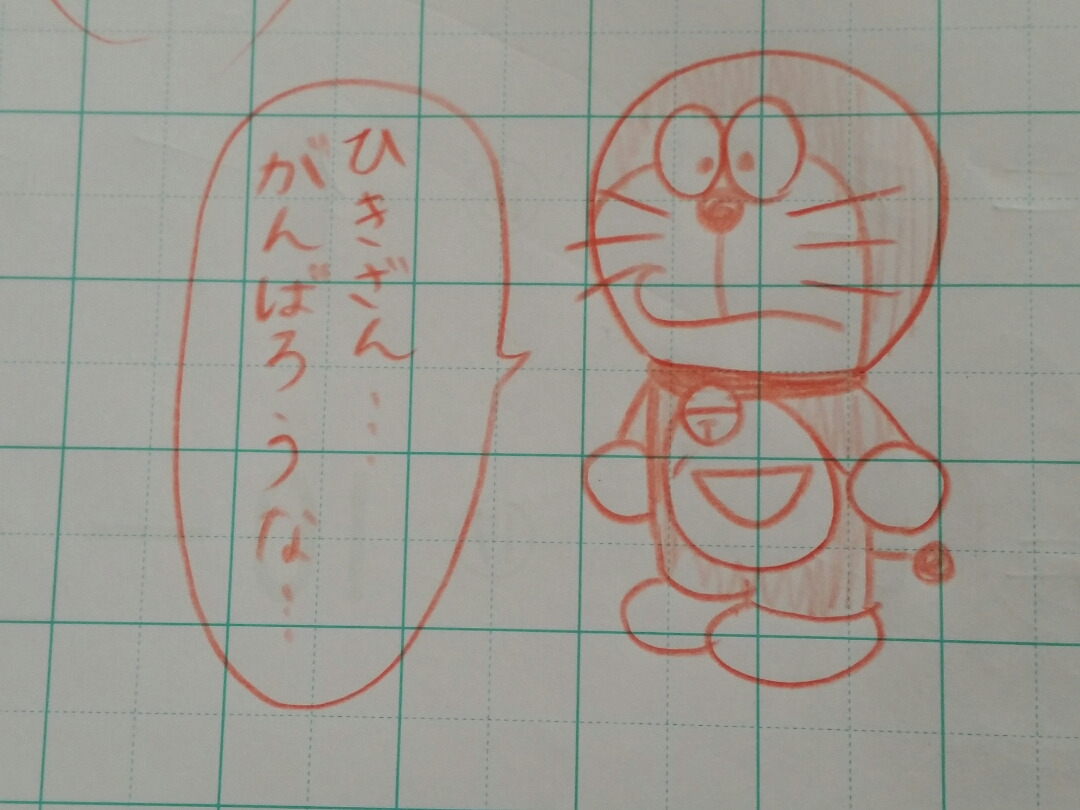 ひきざん……
がんばろうな……